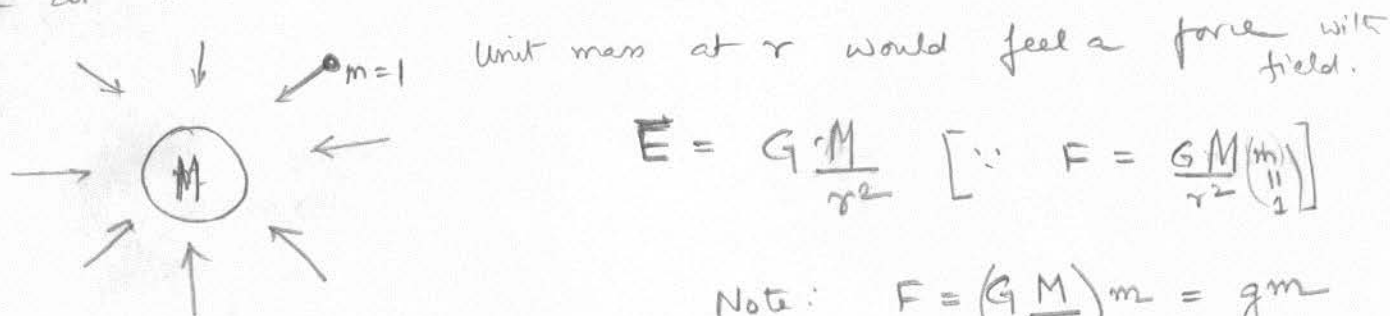 Unit mass at r would feel a force with field.
m=1
M
E = G M/r² [∵ F = GM/r² (m = 1)]
Note: F = (G M) m = gm